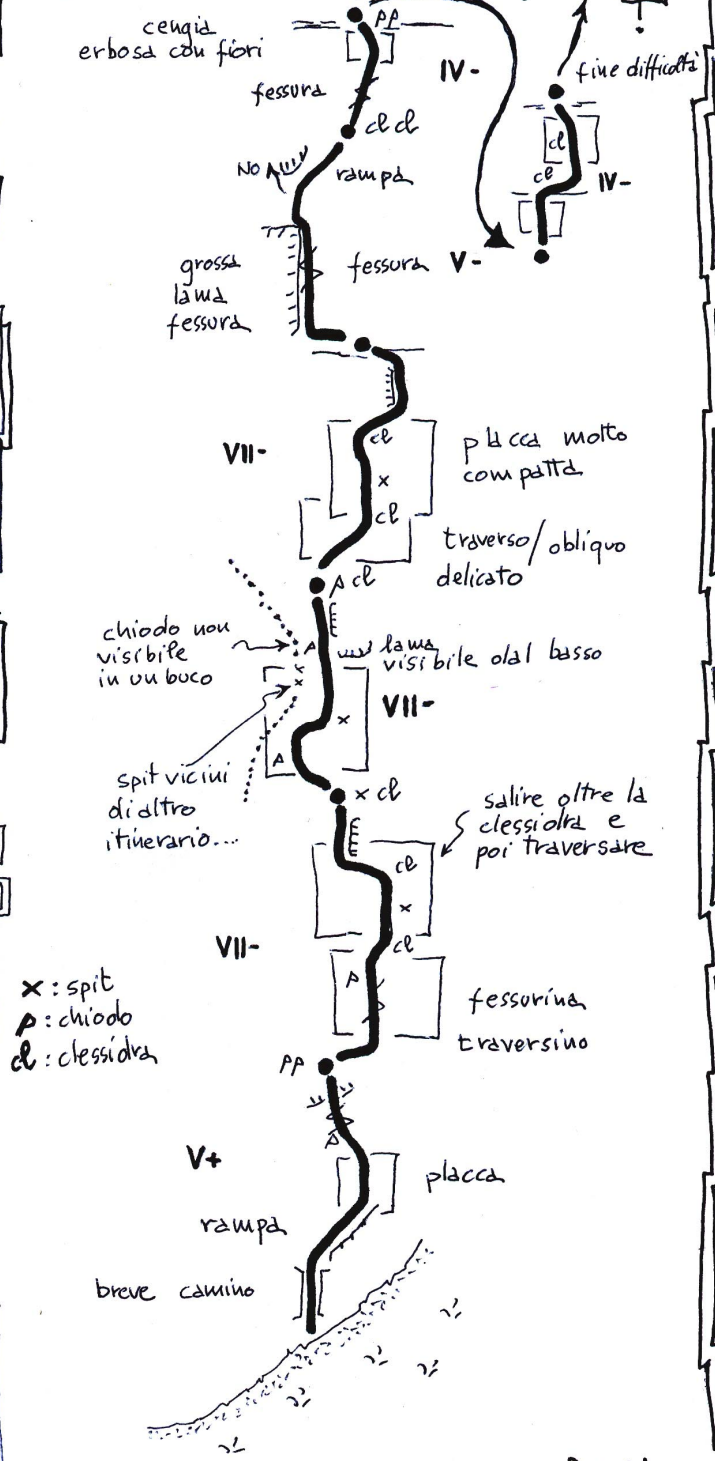 cengia
erbosa con fiori
PP
IV-
fine difficoltà
fessura
cl cl
cl
cl
IV-
NO
rampa
grossa
lama
fessura
fessura
V-
cl
VII-
placca molto
compatta
x
cl
traverso/obliquo
delicato
P cl
chiodo non
visibile
in un buco
P
lama
visibile dal basso
x
x
VII-
x
P
spit vicini
di altro
itinerario...
x cl
salire oltre la
clessidra e
poi traversare
cl
x
VII-
cl
P
fessurina
traversino
x : spit
P : chiodo
cl : clessidra
PP
P
V+
placca
rampa
breve camino